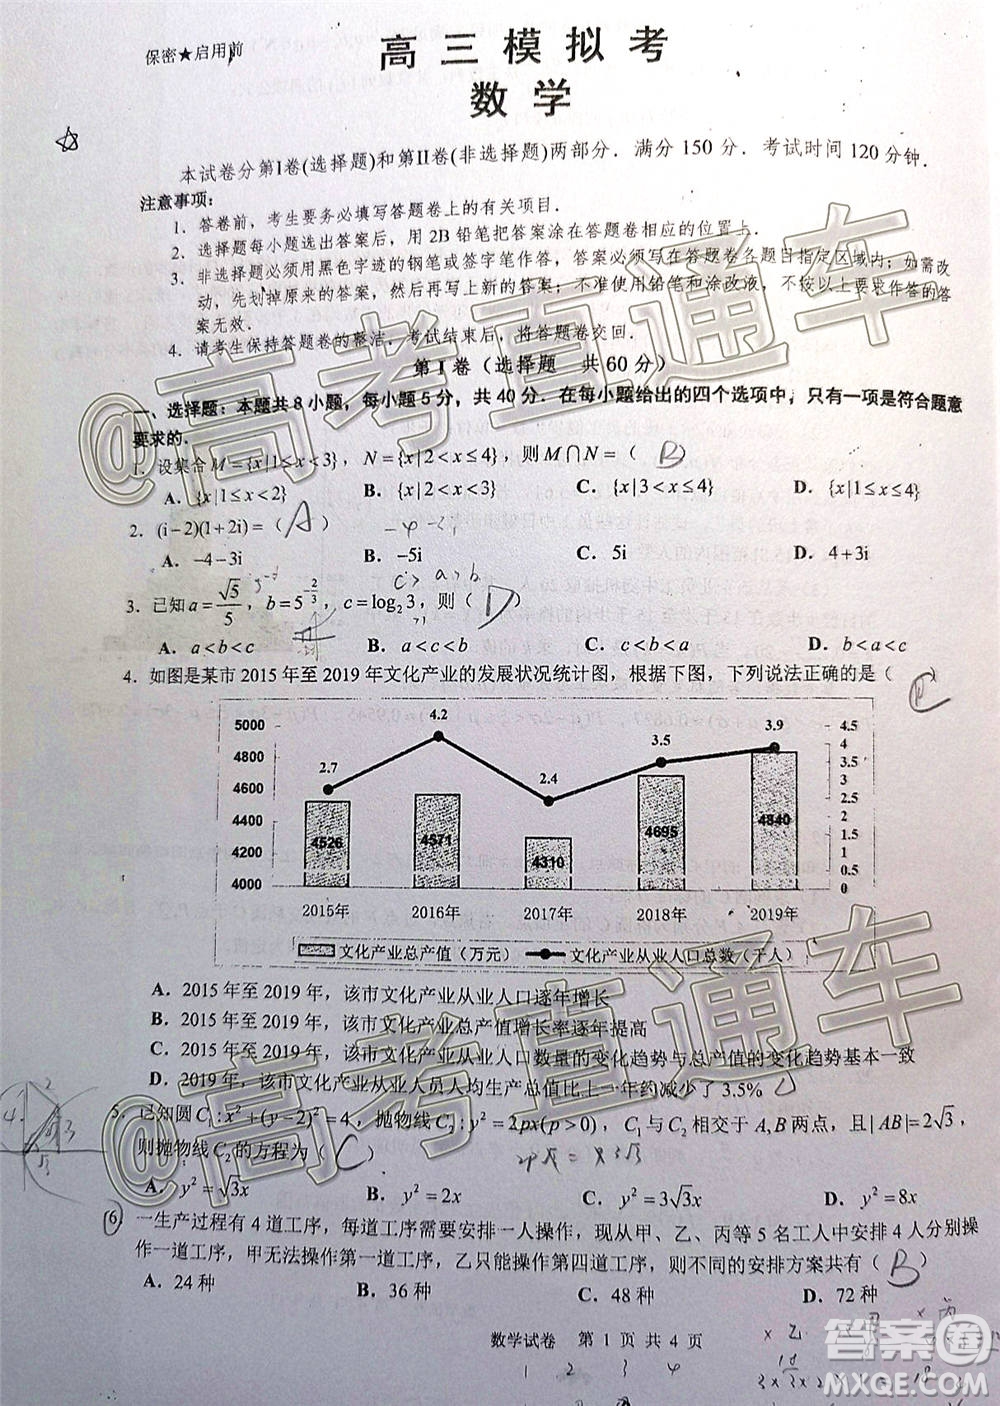 保密★启用前
高三模拟考
数学
本试卷分第Ⅰ卷(选择题)和第Ⅱ卷(非选择题)两部分．满分 150 分．考试时间 120 分钟．
注意事项：
1．答卷前，考生要务必填写答题卷上的有关项目．
2．选择题每小题选出答案后，用 2B 铅笔把答案涂在答题卷相应的位置上．
3．非选择题必须用黑色字迹的钢笔或签字笔作答，答案必须写在答题卷各题目指定区域内；如需改
动，先划掉原来的答案，然后再写上新的答案；不准使用铅笔和涂改液，不按以上要求作答的答
案无效．
4．请考生保持答题卷的整洁，考试结束后，将答题卷交回．
第Ⅰ卷（选择题 共 60 分）
一、选择题：本题共 8 小题，每小题 5 分，共 40 分．在每小题给出的四个选项中，只有一项是符合题意
要求的．
1．设集合 M={x|1≤x<3}，N={x|2<x≤4}，则 M∩N=（ B ）
A．{x|1≤x<2} B．{x|2<x<3} C．{x|3<x≤4} D．{x|1≤x≤4}
2．(i−2)(1+2i)=（ A ）
A．−4−3i B．−5i C．5i D．4+3i
c> a>b
3．已知 a=√5/5，b=5^(−2/3)，c=log₂3，则（ D ）
A．a<b<c B．a<c<b C．c<b<a D．b<a<c
4．如图是某市 2015 年至 2019 年文化产业的发展状况统计图，根据下图，下列说法正确的是（ ）
5000 4800 4600 4400 4200 4000
2.7 4.2 2.4 3.5 3.9
4526 4571 4310 4695 4840
4.5 4 3.5 3 2.5 2 1.5 1 0.5 0
2015年 2016年 2017年 2018年 2019年
文化产业总产值（万元） 文化产业从业人口总数（千人）
A．2015 年至 2019 年，该市文化产业从业人口逐年增长
B．2015 年至 2019 年，该市文化产业总产值增长率逐年提高
C．2015 年至 2019 年，该市文化产业从业人口数量的变化趋势与总产值的变化趋势基本一致
D．2019 年，该市文化产业从业人员人均生产总值比上一年约减少了 3.5%
5．已知圆 C₁:x²+(y−2)²=4，抛物线 C₂:y²=2px(p>0)，C₁与 C₂相交于 A,B 两点，且|AB|=2√3，
则抛物线 C₂的方程为（ C ）
A．y²=√3x B．y²=2x C．y²=3√3x D．y²=8x
6．一生产过程有 4 道工序，每道工序需要安排一人操作，现从甲、乙、丙等 5 名工人中安排 4 人分别操
作一道工序，甲无法操作第一道工序，乙只能操作第四道工序，则所有的安排方案共有（ B ）
A．24 种 B．36 种 C．48 种 D．72 种
数学试卷 第 1 页 共 4 页
1 2 3 4
@高考直通车
@高考直通车
答案圈
MXQE.COM